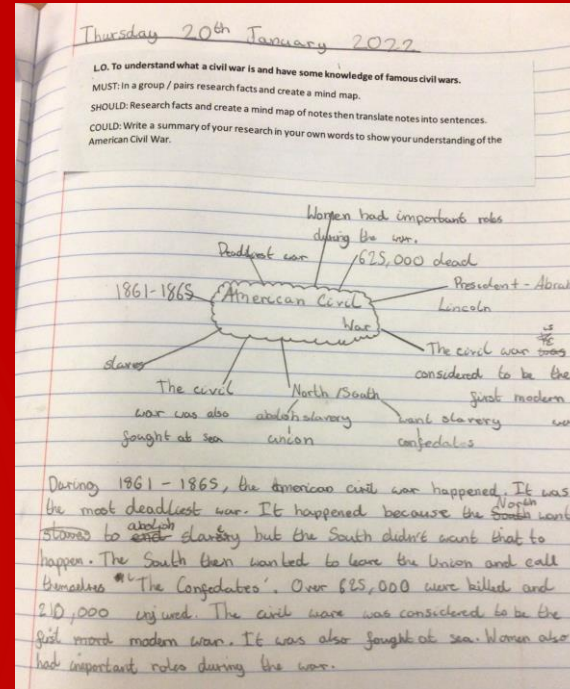 Thursday 20th January 2022
L.O. To understand what a civil war is and have some knowledge of famous civil wars.
MUST: In a group / pairs research facts and create a mind map.
SHOULD: Research facts and create a mind map of notes then translate notes into sentences.
COULD: Write a summary of your research in your own words to show your understanding of the
American Civil War.
Women had important roles
during the war.
Deadliest war
625,000 dead
1861-1865
American Civil
War
President - Abra
Lincoln
The civil war is
considered to be the
first modern
slaves
The civil
war was also
fought at sea
North / South
abolish slavery
union
want slavery
confedates
During 1861 - 1865, the American civil war happened. It was
the most deadliest war. It happened because the North want
to abolish slavery but the South didn't want that to
happen. The South then wanted to leave the Union and call
themselves "The Confedates'. Over 625,000 were killed and
210,000 injured. The civil ware was considered to be the
first mord modern war. It was also fought at sea. Women also
had important roles during the war.